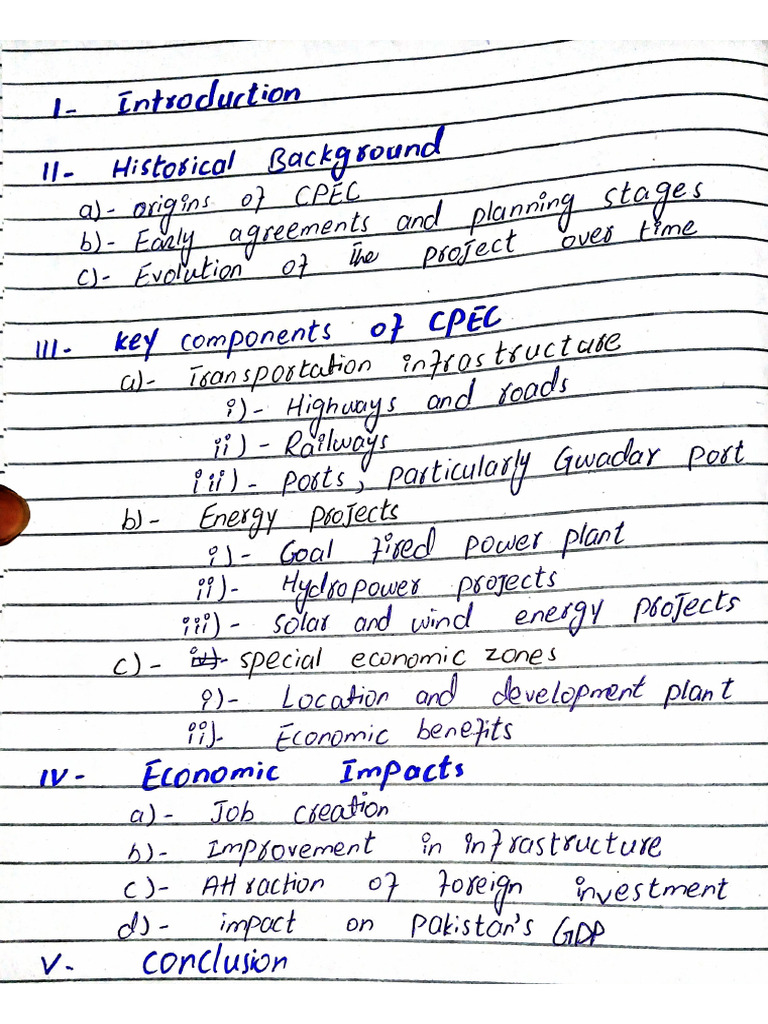 I- Introduction
II- Historical Background
a)- origins of CPEC
b)- Early agreements and planning stages
c)- Evolution of the project over time
III- key components of CPEC
a)- Transportation infrastructure
i)- Highways and roads
ii)- Railways
iii)- Ports, particularly Gwadar port
b)- Energy projects
i)- Goal fired power plant
ii)- Hydropower projects
iii)- Solar and wind energy projects
c)- iv)- special economic zones
i)- Location and development plant
ii)- Economic benefits
IV- Economic Impacts
a)- Job creation
b)- Improvement in infrastructure
c)- Attraction of foreign investment
d)- impact on Pakistan's GDP
V- Conclusion